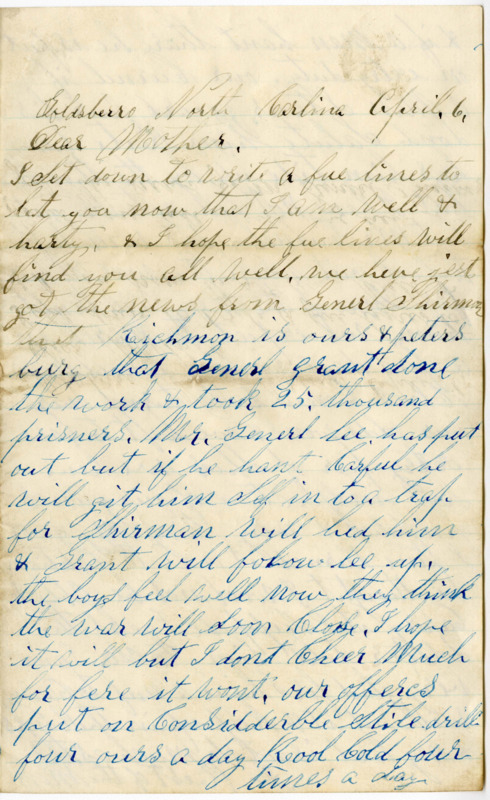 Goldsberro North Carlina April, 6,
Dear Mother.
I set down to write a fue lines to
let you now that I am well &
harty, & I hope the fue lines will
find you all well, we heve jest
got the news from Generl Shirmon
that Richmon is ours & peters
burg that Generl grant done
the work & took 25. thousand
prisners. Mr. Generl lee has put
out but if he hant Carful he
will git him self in to a trap
for Shirman will hed him
& Grant will folow lee up.
the boys feel well now they think
the war will soon Close. I hope
it will but I dont Cheer Much
for fere it wont. our offeres
put on Considderble Stile drill
four ours a day Rool Cold four
times a day